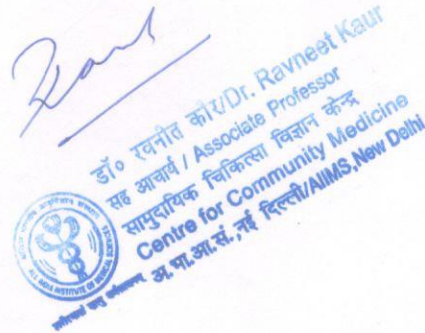 Kaur
डॉ० रवनीत कौर/Dr. Ravneet Kaur
सह आचार्य / Associate Professor
सामुदायिक चिकित्सा विज्ञान केन्द्र
Centre for Community Medicine
अ.भा.आ.सं.,नई दिल्ली/AIIMS,New Delhi
ALL INDIA INSTITUTE OF MEDICAL SCIENCES